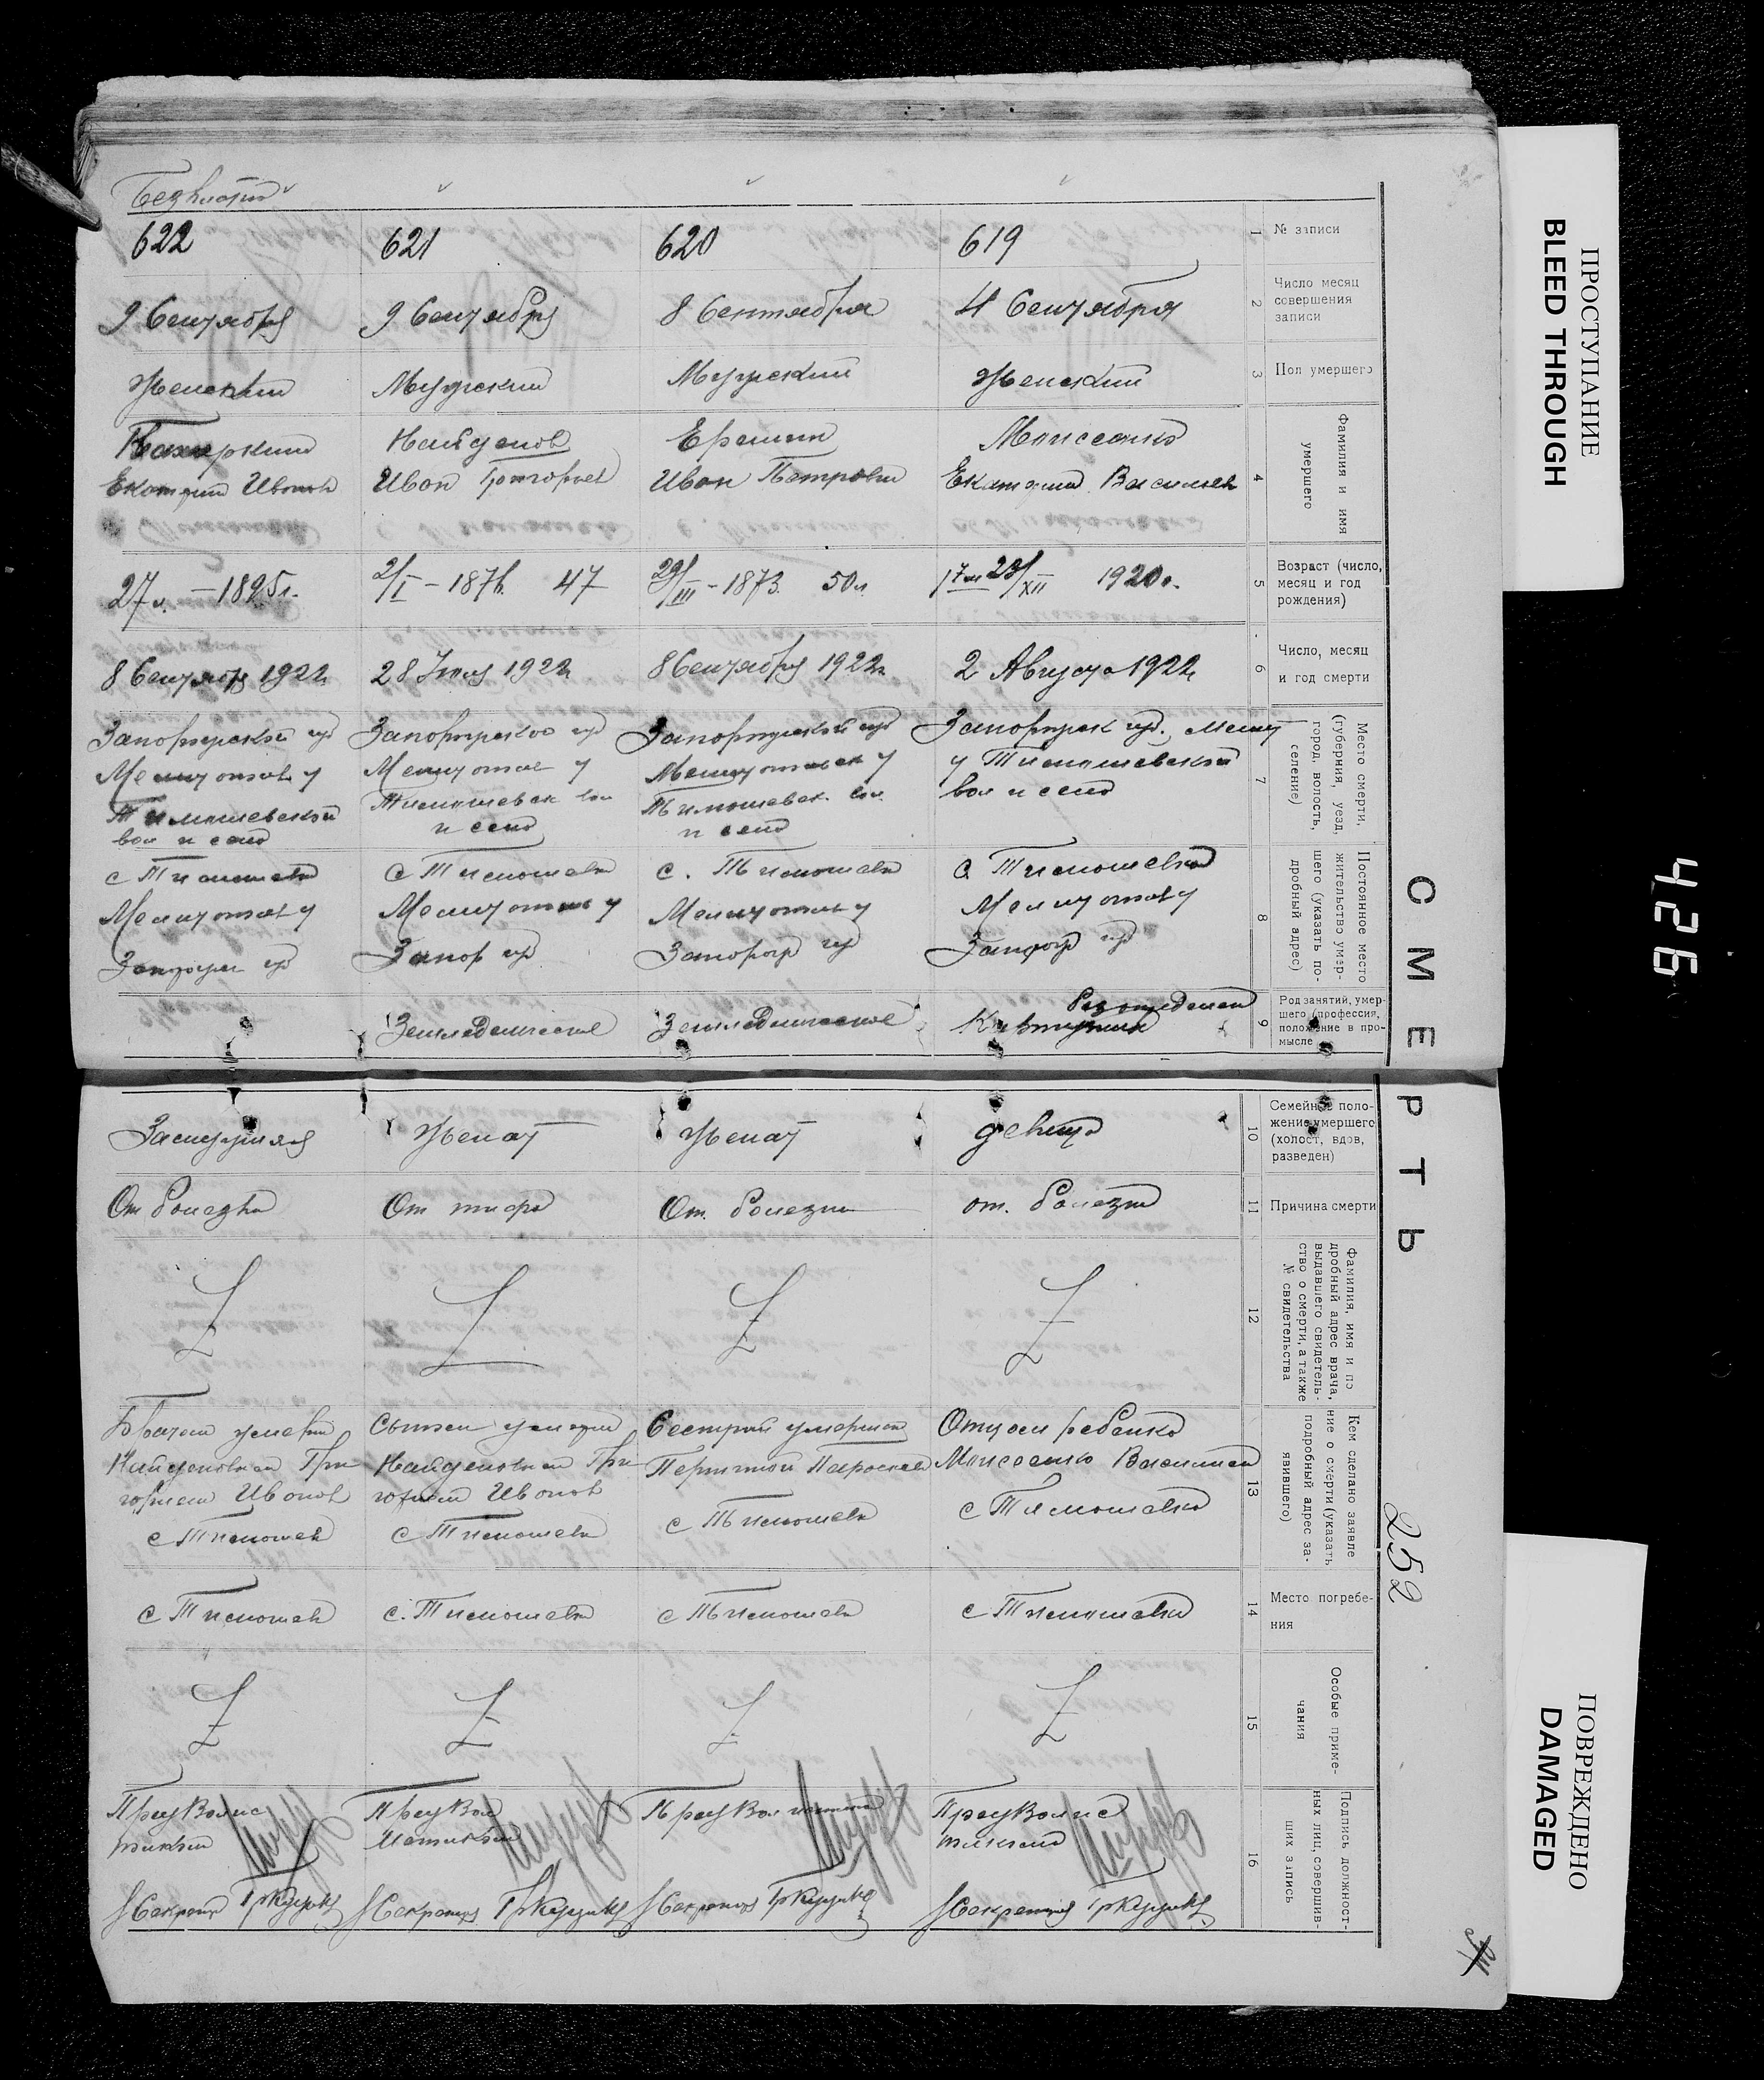 622
621
620
619
1
№ записи
9 Сентября
9 Сентября
8 Сентября
4 Сентября
2
Число месяц
совершения
записи
Женский
Мужский
Мужский
Женский
3
Пол умершего
Найденов
Ерешин
Моисеенко
Иван Григорьев
Иван Петрович
Екатерина Васильев
4
Фамилия и имя
умершего
27 л. – 1895 г.
2/I – 187 47
29/III – 1873. 50 л
23/XII 1920 г.
5
Возраст (число,
месяц и год
рождения)
8 Сентября 1922
28 Июля 1922
8 Сентября 1922
2 Августа 1922
6
Число, месяц
и год смерти
Запорожской губ
Мелитопол у
Тимошевской
вол и село
Запорожской губ
Мелитопол у
Тимошевск вол
и село
Запорожской губ
Мелитопольск у
Тимошевск. вол
и село
Запорожск губ. Мелит
у Тимошевской
вол и село
7
Место смерти,
(губерния, уезд,
город, волость,
селение)
с Тимошевка
Мелитопол у
с Тимошевка
Мелитопол у
Запор губ
с. Тимошевка
Мелитопол у
Запорож губ
с Тимошевка
Мелитопол у
Запорож губ
8
Постоянное место
жительство умер-
шего (указать по-
дробный адрес)
Земледельческое
Земледельческое
9
Род занятий, умер-
шего (профессия,
положение в про-
мысле
СМЕРТЬ
Замужняя
Женат
Женат
девица
10
Семейное поло-
жение умершего
(холост, вдов,
разведен)
От болезни
От тифа
От. болезни
от. болезни
11
Причина смерти
12
Фамилия, имя и по
дробный адрес врача,
выдавшего свидетель-
ство о смерти, а также
№ свидетельства
Найденовым Гри
горием Иванов
с Тимошев
Сыном умерш
Найденовым Гри
горием Иванов
с Тимошевка
Сестрой умершего
с Тимошевка
Отцом ребенка
Моисеенко Василием
с Тимошевка
13
Кем сделано заявле
ние о смерти (указать
подробный адрес за-
явившего)
252
с Тимошев
с. Тимошевка
с Тимошевка
с Тимошевка
14
Место погребе-
ния
15
Особые приме-
чания
Пред Волис
Пред Вол
Пред Вол
Пред Волис
Секретарь
Секретарь
Секретарь
Секретарь
16
Подпись должност-
ных лиц, совершив-
ших запись
ПРОСТУПАНИЕ
BLEED THROUGH
426
ПОВРЕЖДЕНО
DAMAGED